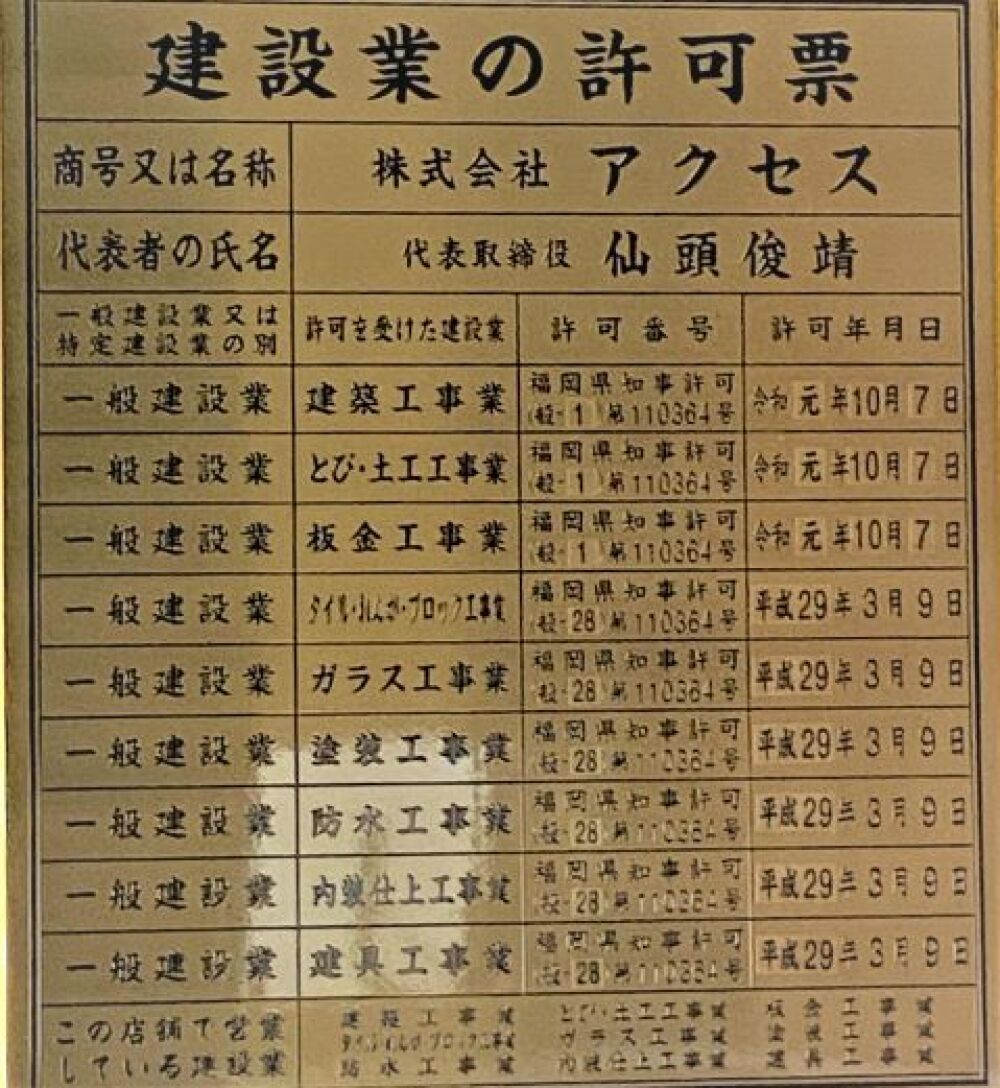 建設業の許可票
商号又は名称 株式会社 アクセス
代表者の氏名 代表取締役 仙頭俊靖
一般建設業又は
特定建設業の別
許可を受けた建設業 許可番号 許可年月日
一般建設業 建築工事業 福岡県知事許可
(般-1)第110364号 令和元年10月7日
一般建設業 とび・土工工事業 福岡県知事許可
(般-1)第110364号 令和元年10月7日
一般建設業 板金工事業 福岡県知事許可
(般-1)第110364号 令和元年10月7日
一般建設業 タイル・れんが・ブロック工事業 福岡県知事許可
(般-28)第110364号 平成29年3月9日
一般建設業 ガラス工事業 福岡県知事許可
(般-28)第110364号 平成29年3月9日
一般建設業 塗装工事業 福岡県知事許可
(般-28)第110364号 平成29年3月9日
一般建設業 防水工事業 福岡県知事許可
(般-28)第110364号 平成29年3月9日
一般建設業 内装仕上工事業 福岡県知事許可
(般-28)第110364号 平成29年3月9日
一般建設業 建具工事業 福岡県知事許可
(般-28)第110364号 平成29年3月9日
この店舗で営業
している建設業
建築工事業 とび・土工工事業 板金工事業
タイル・れんが・ブロック工事業 ガラス工事業 塗装工事業
防水工事業 内装仕上工事業 建具工事業